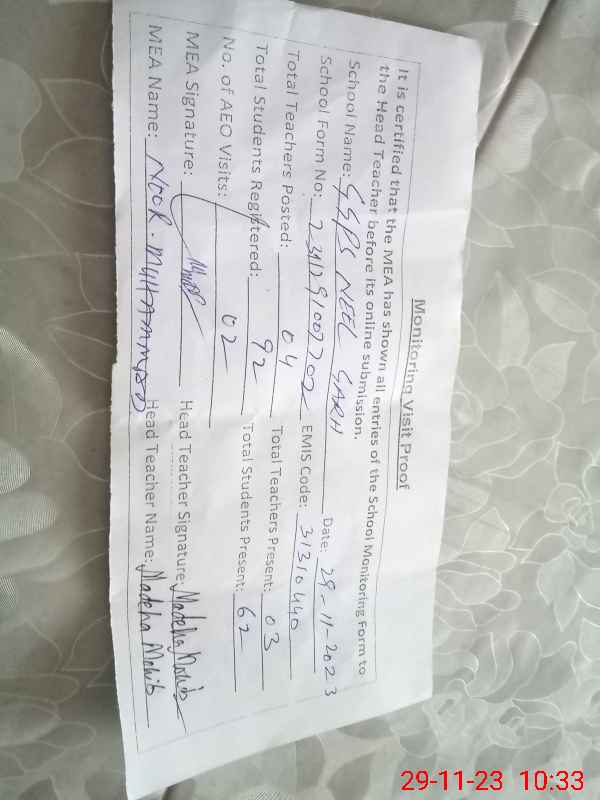 Monitoring Visit Proof
It is certified that the MEA has shown all entries of the School Monitoring Form to
the Head Teacher before its online submission.
School Name: GGPS NEEL GARH Date: 29-11-2023
School Form No: EMIS Code: 31310440
Total Teachers Posted: 04 Total Teachers Present: 03
Total Students Registered: 92 Total Students Present: 62
No. of AEO Visits: 02
MEA Signature: Head Teacher Signature: Madeha
MEA Name: NOOR. MUHAMMAD Head Teacher Name: Madeha
29-11-23 10:33